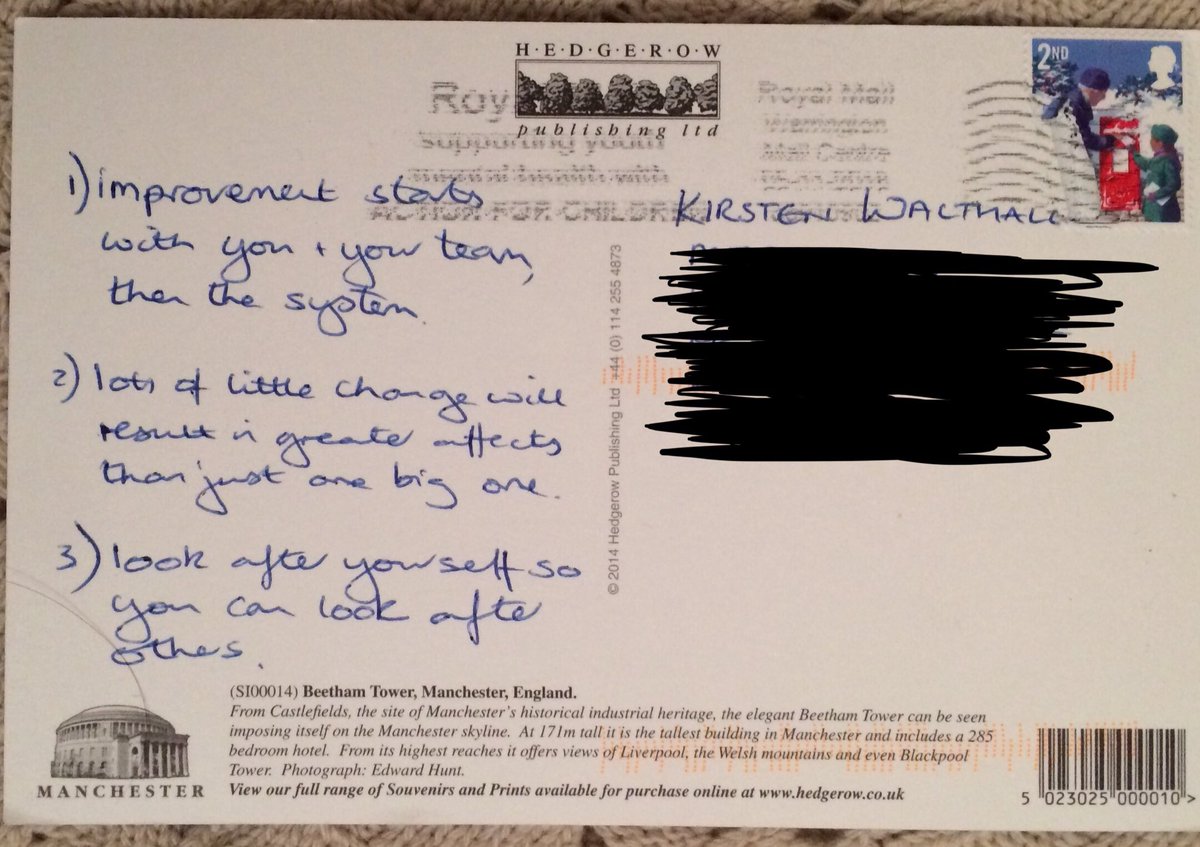 H·E·D·G·E·R·O·W
publishing ltd
2ND
Royal Mail
Warrington
Mail Centre
supporting youth
mental health with
ACTION FOR CHILDREN
1) improvement starts
with you + your team,
then the system.
2) lots of little change will
result in greater affects
than just one big one.
3) look after yourself so
you can look after
others.
KIRSTEN WALTHALL
© 2014 Hedgerow Publishing Ltd +44 (0) 114 255 4873
(SI00014) Beetham Tower, Manchester, England.
From Castlefields, the site of Manchester's historical industrial heritage, the elegant Beetham Tower can be seen
imposing itself on the Manchester skyline. At 171m tall it is the tallest building in Manchester and includes a 285
bedroom hotel. From its highest reaches it offers views of Liverpool, the Welsh mountains and even Blackpool
Tower. Photograph: Edward Hunt.
View our full range of Souvenirs and Prints available for purchase online at www.hedgerow.co.uk
MANCHESTER
5 023025 000010 >